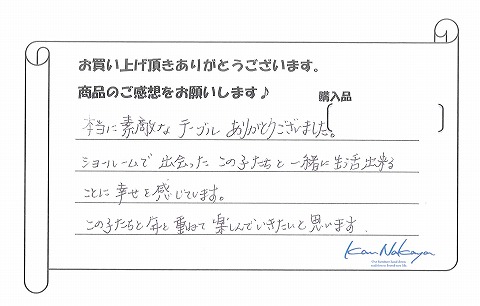 お買い上げ頂きありがとうございます。
商品のご感想をお願いします♪
購入品
本当に素敵なテーブルありがとうございました。
ショールームで出会ったこの子たちと一緒に生活出来る
ことに幸せを感じています。
この子たちと年を重ねて楽しんでいきたいと思います.